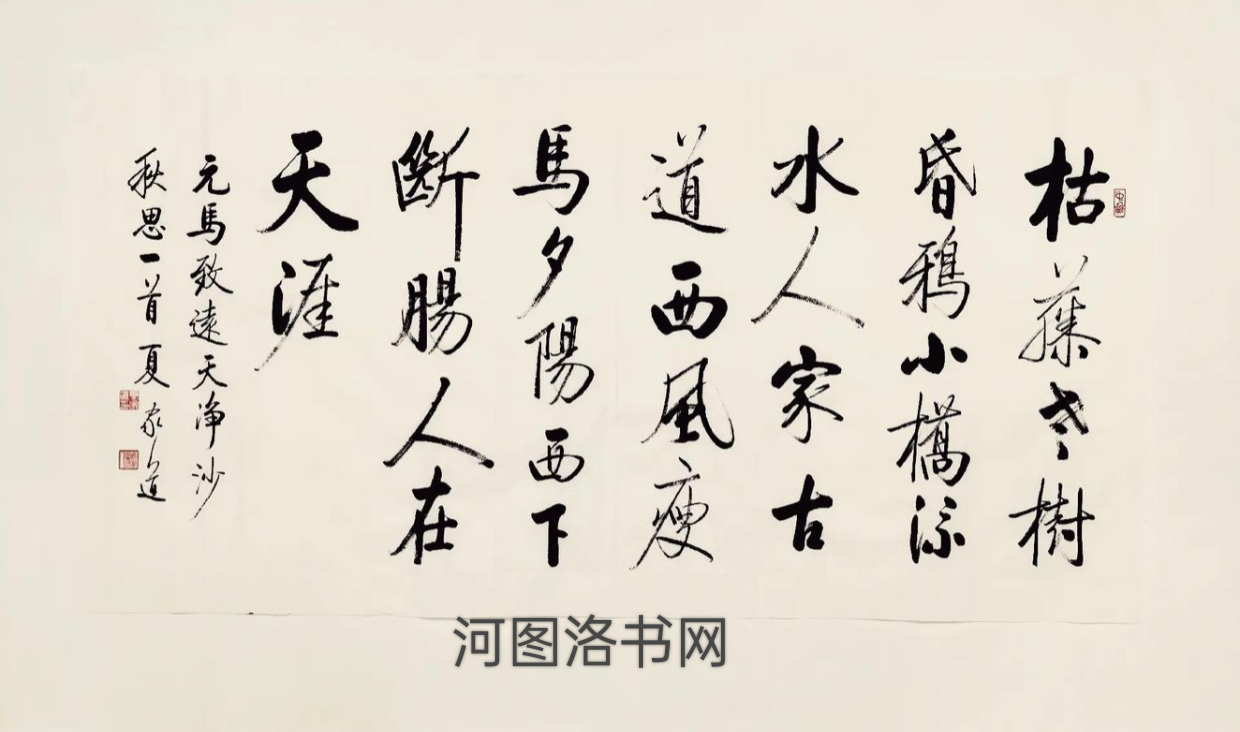 枯藤老樹
昏鴉小橋流
水人家古
道西風瘦
馬夕陽西下
斷腸人在
天涯
元馬致遠天净沙
秋思一首夏家道
河图洛书网